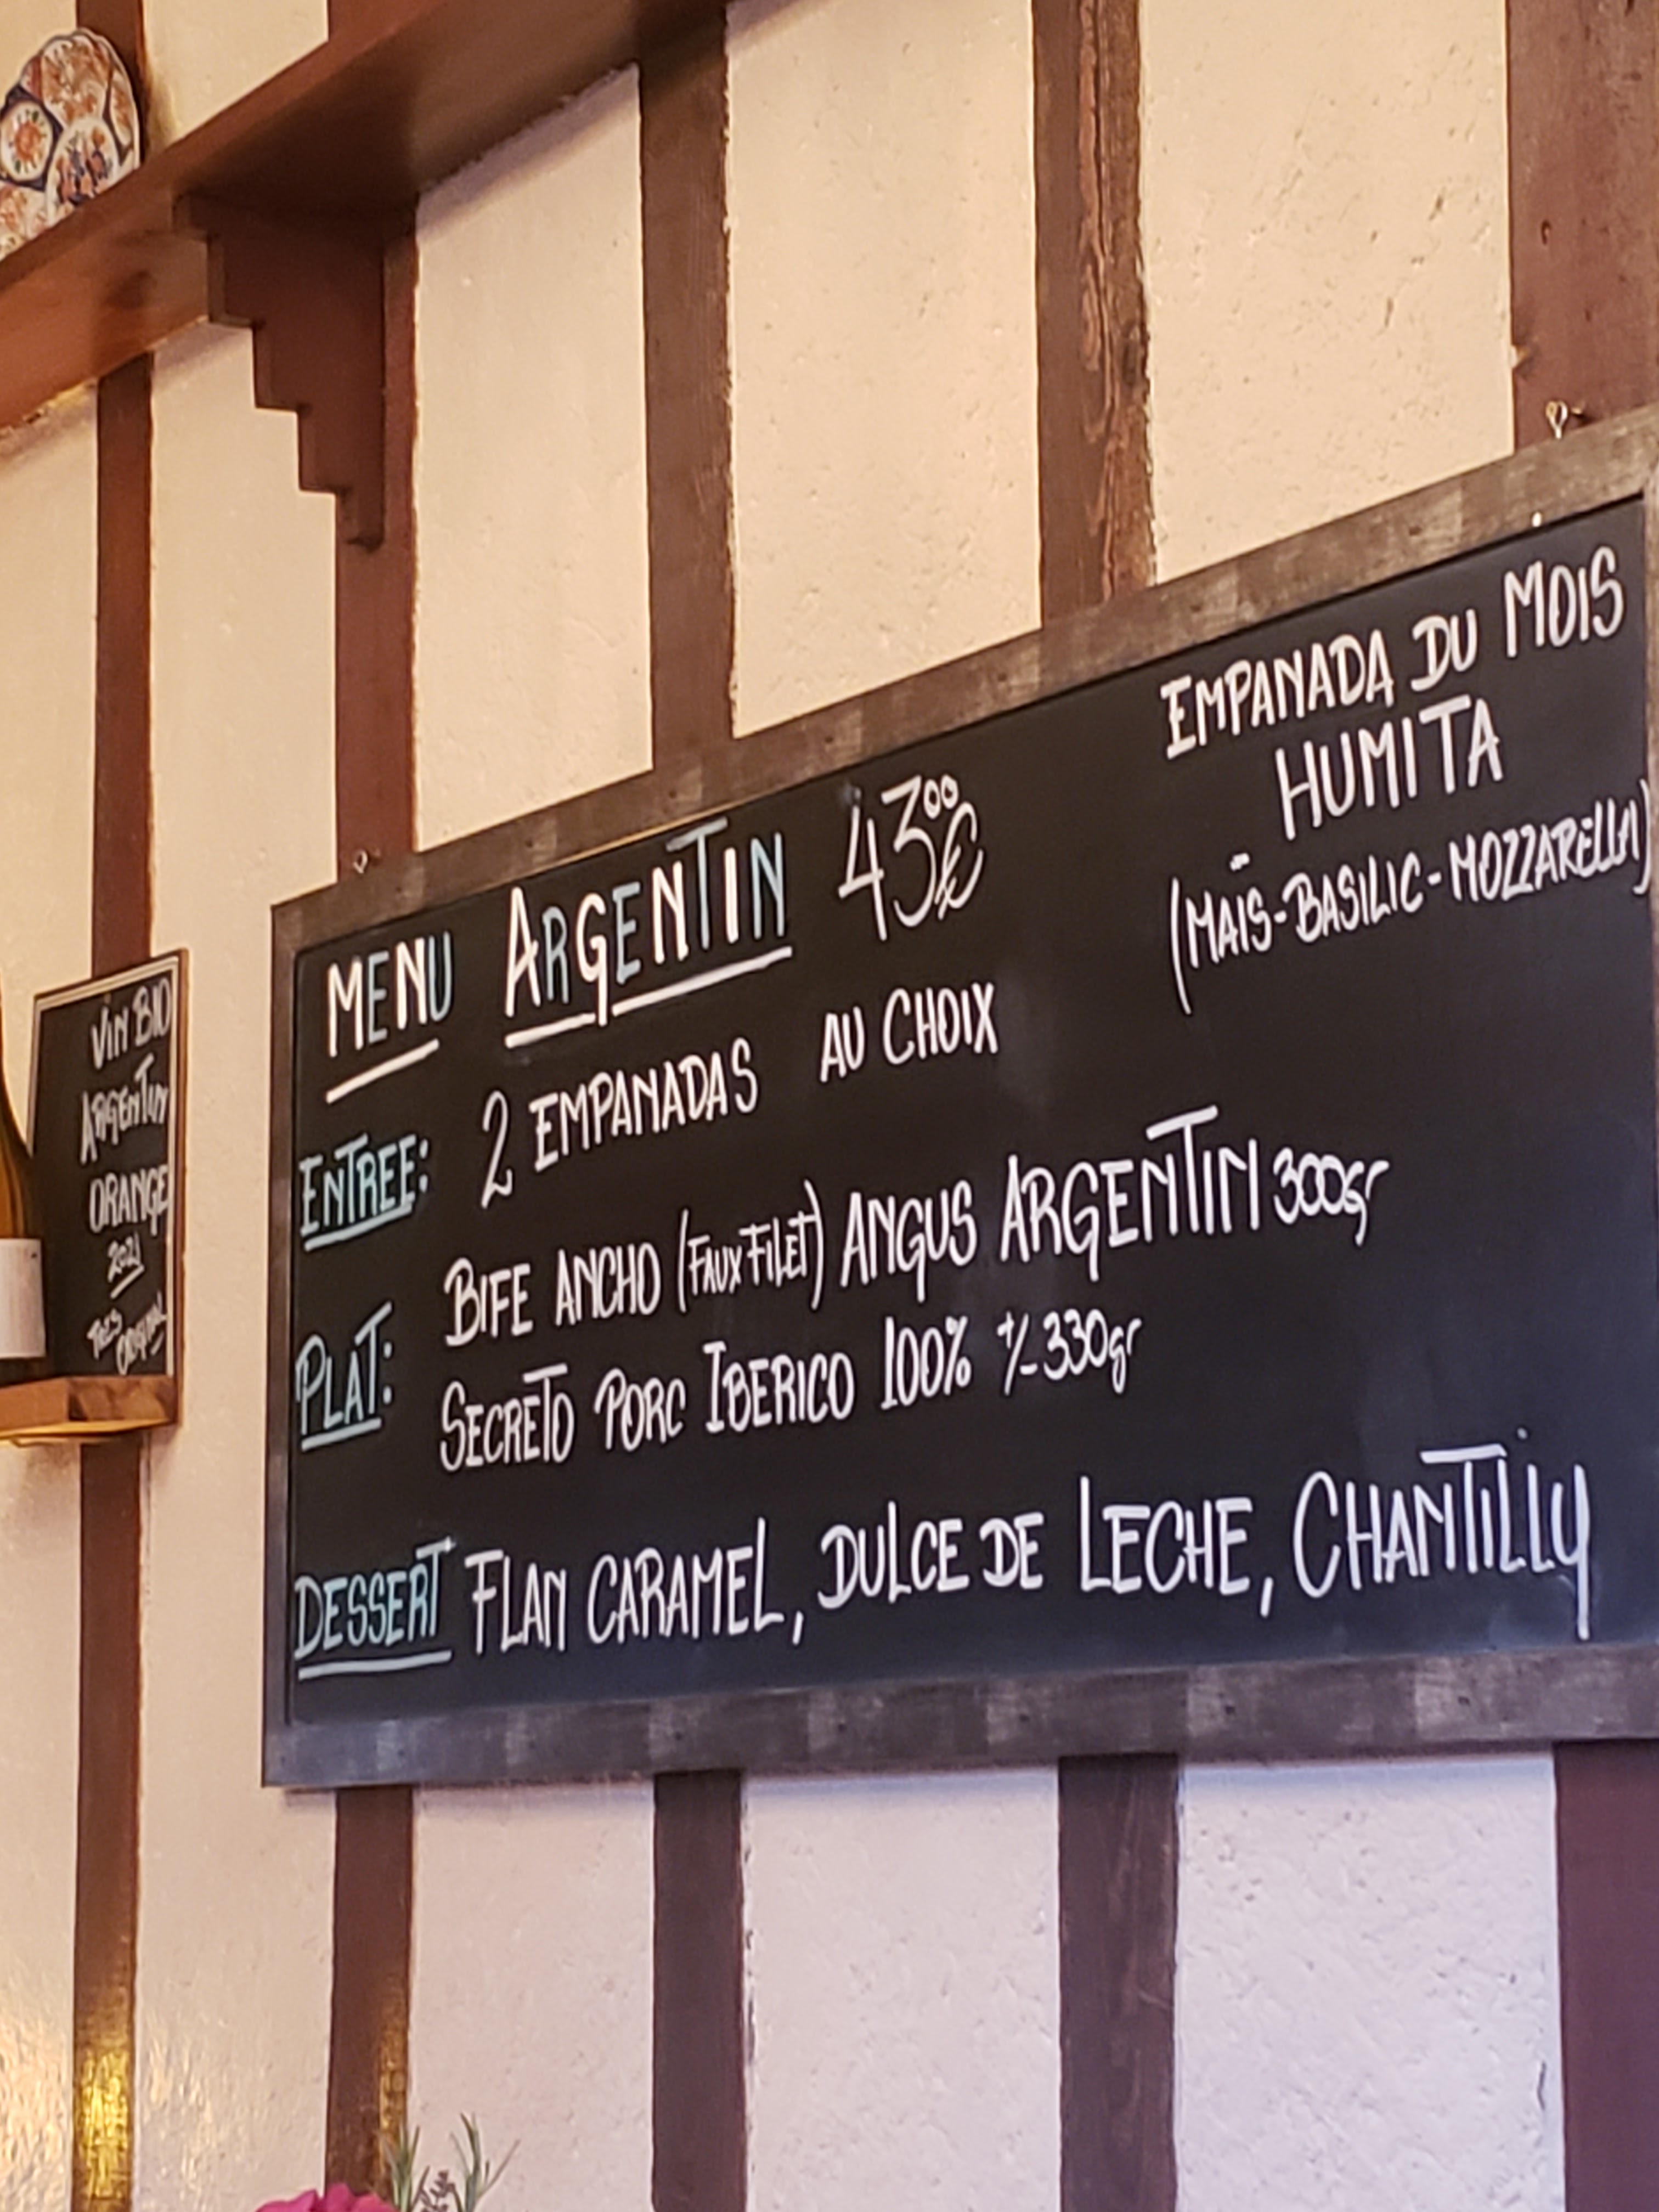 MENU ARGENTIN 43⁰⁰€
ENTREE: 2 EMPANADAS AU CHOIX
PLAT: BIFE ANCHO (FAUX FILET) ANGUS ARGENTIN 300gr
SECRETO PORC IBERICO 100% +/- 330gr
DESSERT FLAN CARAMEL, DULCE DE LECHE, CHANTILLY
EMPANADA DU MOIS
HUMITA
(MAÏS-BASILIC-MOZZARELLA)
VIN BIO
ARGENTIN
ORANGE
2021
TRES
ORIGINAL